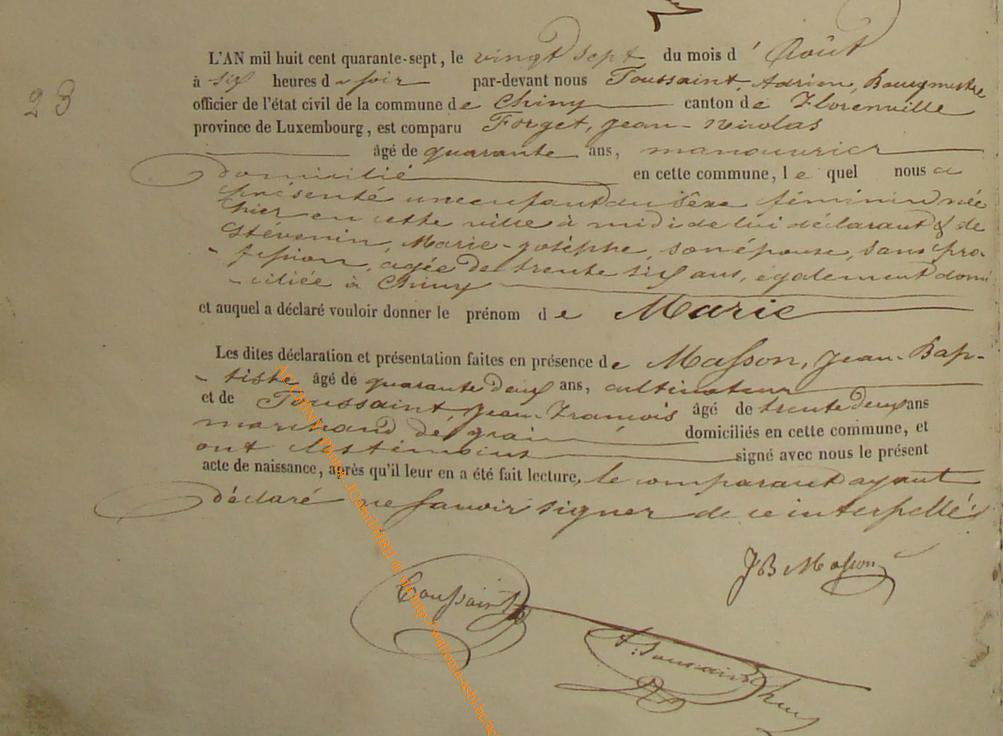 23
L'AN mil huit cent quarante-sept, le vingt sept du mois d' Août
à six heures du soir par-devant nous Toussaint, Adrien, Bourgmestre
officier de l'état civil de la commune de Chiny canton de Florenville
province de Luxembourg, est comparu Forget, Jean-Nicolas
âgé de quarante ans, manouvrier
domicilié en cette commune, le quel nous a
présenté un enfant du sèxe féminin née
hier en cette ville à midi de lui déclarant & de
Stévenin, Marie-josèphe, son épouse, sans pro-
-fession, agée de trente six ans, également domi
-ciliée à Chiny
et auquel a déclaré vouloir donner le prénom de Marie
Les dites déclaration et présentation faites en présence de Masson, Jean-Bap-
-tiste âgé de quarante deux ans, cultivateur
et de Toussaint, Jean-François âgé de trente deux ans
marchand de grain domiciliés en cette commune, et
ont les témoins signé avec nous le présent
acte de naissance, après qu'il leur en a été fait lecture, le comparant ayant
déclaré ne savoir signer de ce interpellé.
JB Masson
Toussaint
A: Toussaint